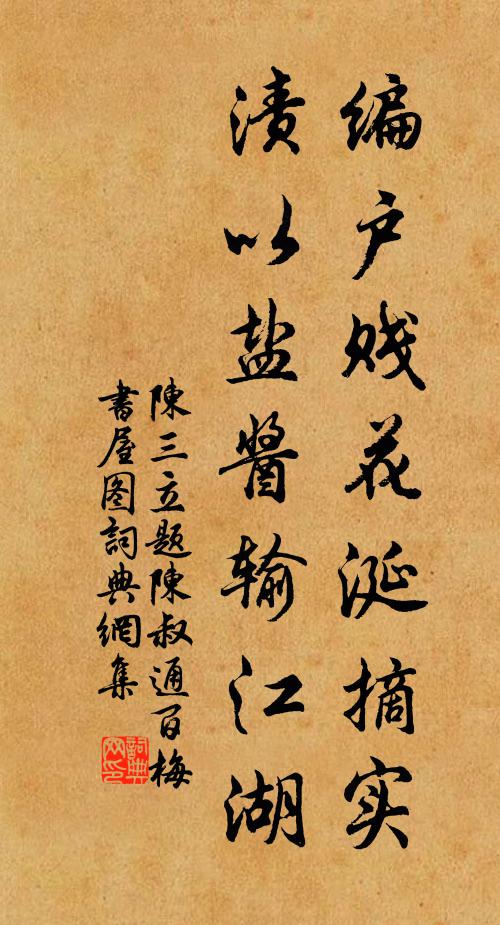 编户贱花涎摘实
渍以盐醬输江湖
陳三立題陳叔通百梅
書屋图詞典網集
詞典网印